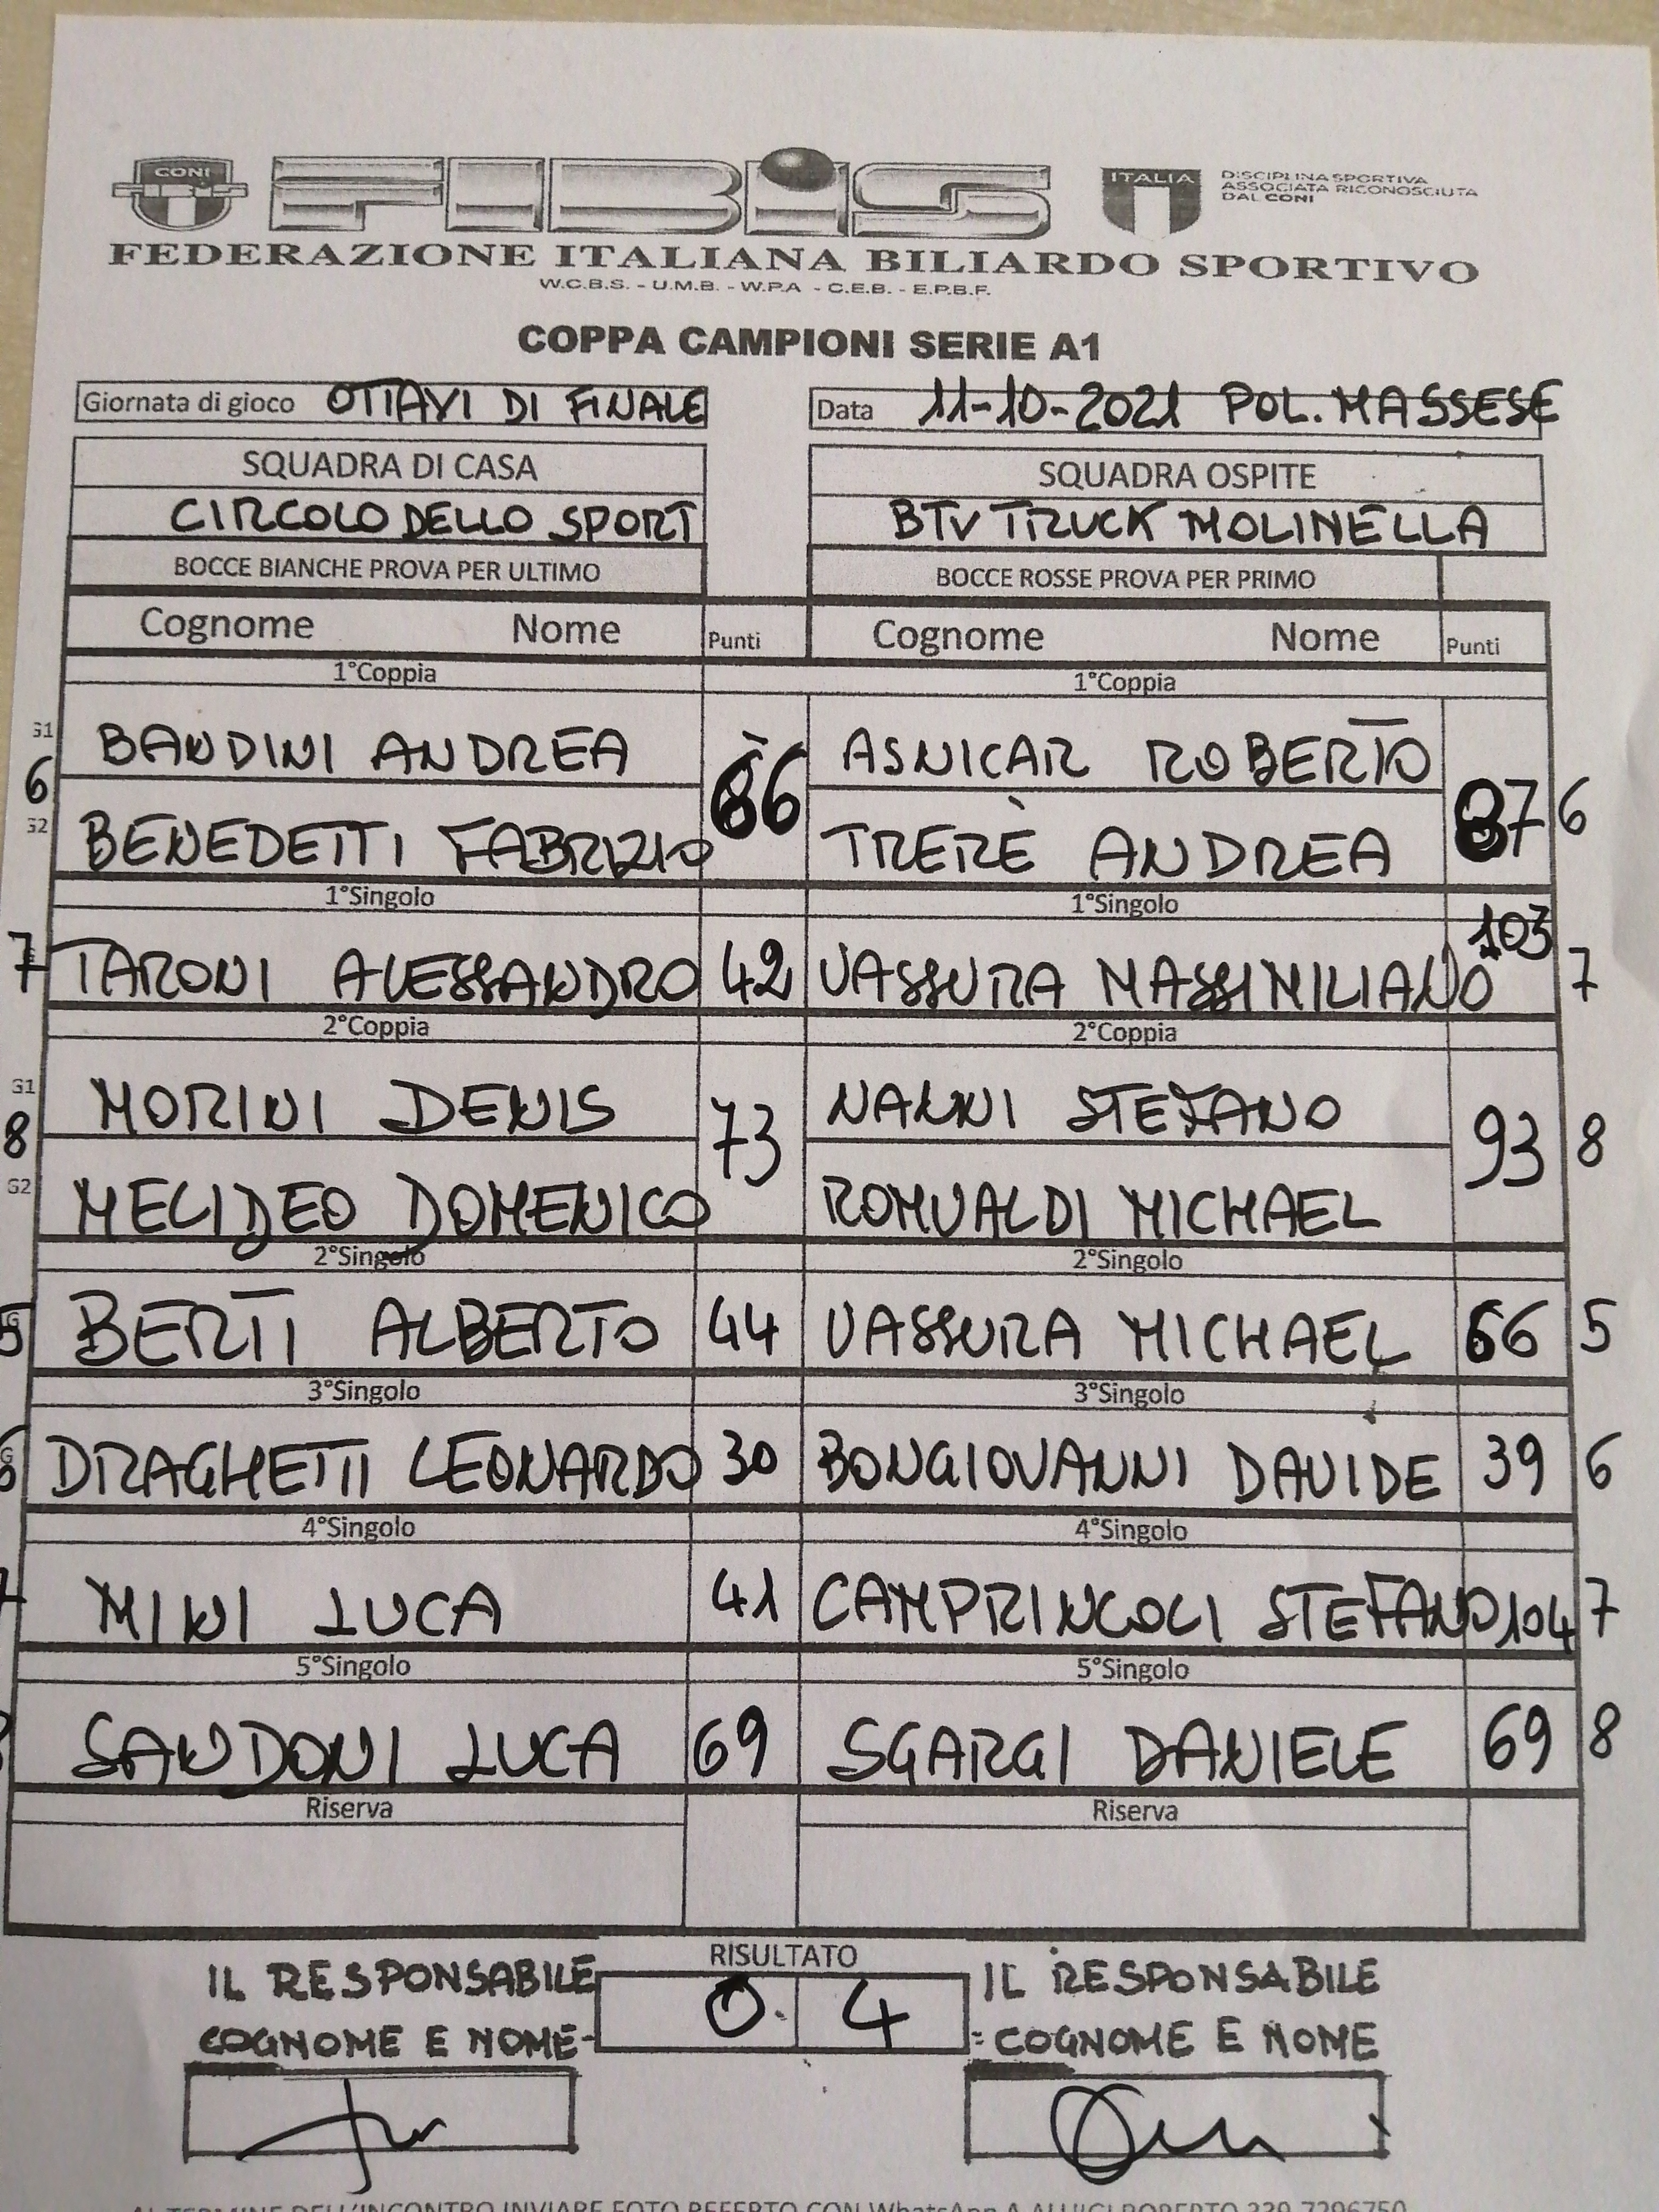 CONI
FIBiS
ITALIA
DISCIPLINA SPORTIVA
ASSOCIATA RICONOSCIUTA
DAL CONI
FEDERAZIONE ITALIANA BILIARDO SPORTIVO
W.C.B.S. - U.M.B. - W.P.A - C.E.B. - E.P.B.F.
COPPA CAMPIONI SERIE A1
Giornata di gioco OTTAVI DI FINALE Data 11-10-2021 POL. MASSESE
SQUADRA DI CASA SQUADRA OSPITE
CIRCOLO DELLO SPORT BTV TRUCK MOLINELLA
BOCCE BIANCHE PROVA PER ULTIMO BOCCE ROSSE PROVA PER PRIMO
Cognome Nome Punti Cognome Nome Punti
1°Coppia 1°Coppia
G1 BANDINI ANDREA ASNICAR ROBERTO
6 66 87 6
G2 BENEDETTI FABRIZIO TRERÈ ANDREA
1°Singolo 1°Singolo
7 TARONI ALESSANDRO 42 VASSURA MASSIMILIANO 103 7
2°Coppia 2°Coppia
G1 MORINI DENIS NANNI STEFANO
8 73 93 8
G2 MELIDEO DOMENICO ROMUALDI MICHAEL
2°Singolo 2°Singolo
5 BERTI ALBERTO 44 VASSURA MICHAEL 66 5
3°Singolo 3°Singolo
6 DRAGHETTI LEONARDO 30 BONGIOVANNI DAVIDE 39 6
4°Singolo 4°Singolo
7 MINI LUCA 41 CAMPRINCOLI STEFANO 104 7
5°Singolo 5°Singolo
SANDONI LUCA 69 SGARGI DANIELE 69 8
Riserva Riserva
RISULTATO
IL RESPONSABILE 0 4 IL RESPONSABILE
COGNOME E NOME COGNOME E NOME
AL TERMINE DELL'INCONTRO INVIARE FOTO REFERTO CON WhatsApp A ALUIGI ROBERTO 339 7296750